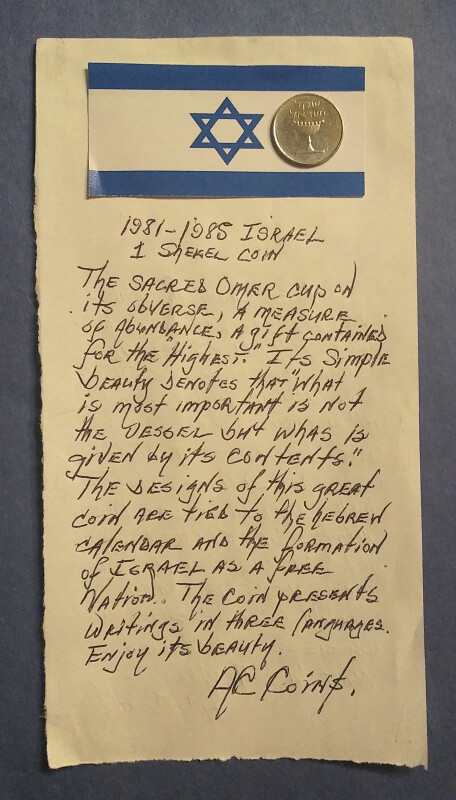 1981-1985 ISRAEL
1 SHEKEL COIN
THE SACRED OMER CUP ON
its OBVERSE, A MEASURE
OF ABUNDANCE, A gift CONTAINED
for the "Highest." Its Simple
beauty DENOTES that "What
is most important is Not
the VESSEL but whas is
given by its CONTENTS."
The DESIGNS of this great
COIN ARE TIED to the hebrew
CALENDAR AND the formation
of ISRAEL AS A FREE
Nation. The COIN presents
writings in three languages.
Enjoy its beauty.
AC Coin$.